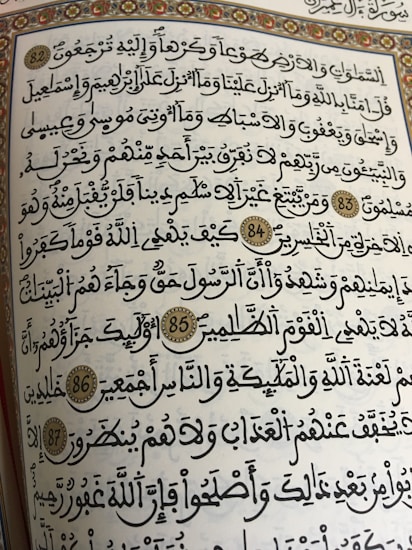 سورة ءال عمران
السَّمَٰوَٰتِ وَالَارْضِ طَوْعاً وَكَرْهاً وَإِلَيْهِ تُرْجَعُونَ 82
قُلَ اٰمَنَّا بِاللَّهِ وَمَا أُنزِلَ عَلَيْنَا وَمَا أُنزِلَ عَلَىٰ إِبْرَٰهِيمَ وَإِسْمَٰعِيلَ
وَإِسْحَٰقَ وَيَعْقُوبَ وَالَاسْبَاطِ وَمَا أُوتِيَ مُوسَىٰ وَعِيسَىٰ
وَالنَّبِيـُٔونَ مِن رَّبِّهِمْ لَا نُفَرِّقُ بَيْنَ أَحَدٍ مِّنْهُمْ وَنَحْنُ لَهُۥ
مُسْلِمُونَ 83 وَمَنْ يَّبْتَغِ غَيْرَ اَلِاسْلَٰمِ دِيناً فَلَنْ يُّقْبَلَ مِنْهُ وَهُوَ
الَاخِرَةِ مِنَ اَلْخَٰسِرِينَ 84 كَيْفَ يَهْدِي اِللَّهُ قَوْماً كَفَرُوا
إِيمَٰنِهِمْ وَشَهِدُوا أَنَّ اَلرَّسُولَ حَقٌّ وَجَاءَهُمُ اُلْبَيِّنَٰتُ
لَا يَهْدِي اِلْقَوْمَ اَلظَّٰلِمِينَ 85 أُوْلَٰئِكَ جَزَاؤُهُمُ أَنَّ
لَعْنَةَ اَللَّهِ وَالْمَلَٰئِكَةِ وَالنَّاسِ أَجْمَعِينَ 86 خَٰلِدِينَ
لَا يُخَفَّفُ عَنْهُمُ اُلْعَذَابُ وَلَا هُمْ يُنظَرُونَ 87 إِلَّا
مِنْ بَعْدِ ذَٰلِكَ وَأَصْلَحُوا فَإِنَّ اَللَّهَ غَفُورٌ رَّحِيمٌ